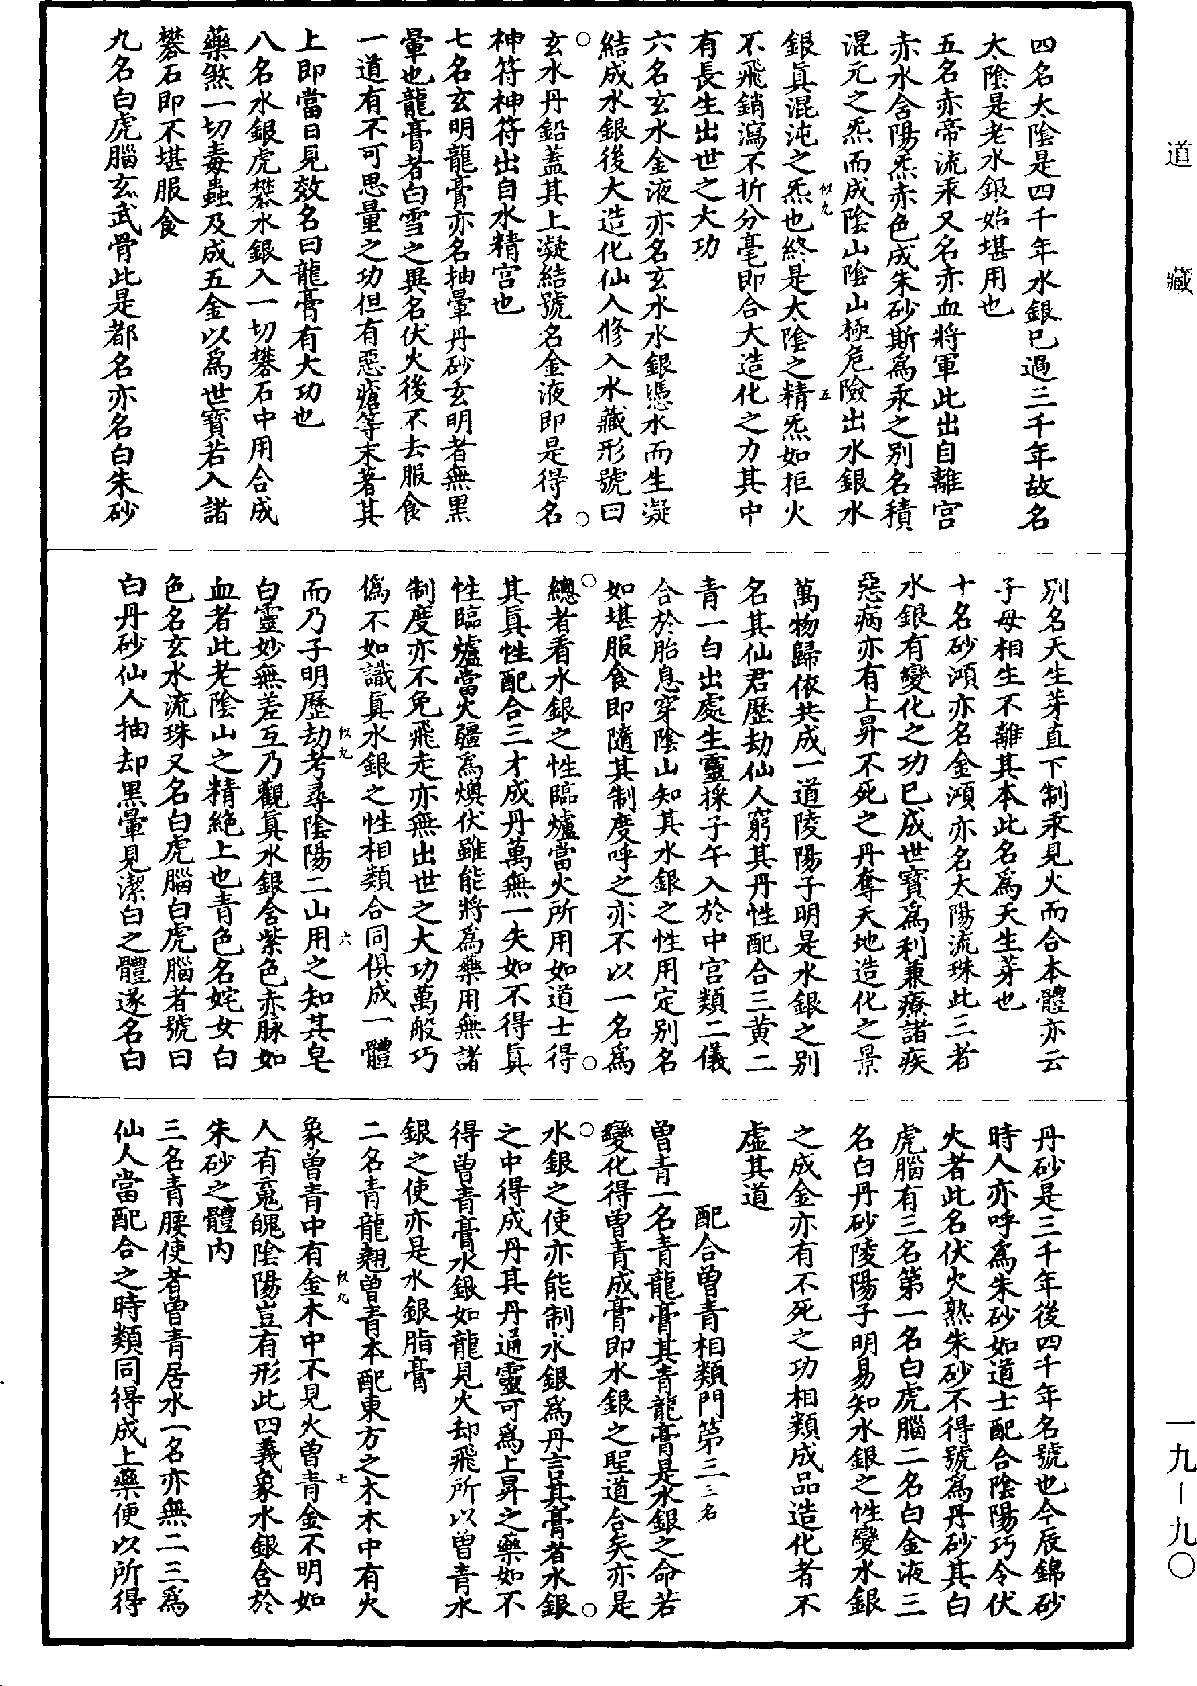 道藏
一九－九〇
四名太陰是四千年水銀已過三千年故名
太陰是老水銀始堪用也
五名赤帝流汞又名赤血將軍此出自離宮
赤水含陽炁赤色成朱砂斯為汞之別名積
混元之炁而成陰山陰山極危險出水銀水
銀真混沌之炁也終是太陰之精炁如拒火
不飛銷瀉不折分毫即合大造化之力其中
有長生出世之大功
六名玄水金液亦名玄水水銀憑水而生凝
結成水銀後大造化仙人修入水藏形號曰
玄水丹鉛蓋其上凝結號名金液即是得名
神符神符出自水精宮也
七名玄明龍膏亦名抽暈丹砂玄明者無黑
暈也龍膏者白雪之異名伏火後不去服食
一道有不可思量之功但有惡瘡等末著其
上即當日見效名曰龍膏有大功也
八名水銀虎礬水銀入一切礬石中用合成
藥煞一切毒蟲及成五金以為世寶若入諸
礬石即不堪服食
九名白虎腦玄武骨此是都名亦名白朱砂
別名天生芽直下制汞見火而合本體亦云
子母相生不離其本此名為天生芽也
十名砂澒亦名金澒亦名太陽流珠此三者
水銀有變化之功已成世寶為利兼療諸疾
惡病亦有上昇不死之丹奪天地造化之景
萬物歸依共成一道陵陽子明是水銀之別
名其仙君歷劫仙人窮其丹性配合三黃二
青一白出處生靈採子午入於中宮類二儀
合於胎息穿陰山知其水銀之性用定別名
如堪服食即隨其制度呼之亦不以一名為
總者看水銀之性臨爐當火所用如道士得
其真性配合三才成丹萬無一失如不得真
性臨爐當火疆為燠伏雖能將為藥用無諸
制度亦不免飛走亦無出世之大功萬般巧
偽不如識真水銀之性相類合同俱成一體
而乃子明歷劫考尋陰陽二山用之知其皂
白靈妙無差互乃觀真水銀含紫色赤脉如
血者此老陰山之精絕上也青色名姹女白
色名玄水流珠又名白虎腦白虎腦者號曰
白丹砂仙人抽却黑暈見潔白之體遂名白
丹砂是三千年後四千年名號也今辰錦砂
時人亦呼為朱砂如道士配合陰陽巧令伏
火者此名伏火熟朱砂不得號為丹砂其白
虎腦有三名第一名白虎腦二名白金液三
名白丹砂陵陽子明易知水銀之性變水銀
之成金亦有不死之功相類成品造化者不
虛其道
配合曾青相類門第三三名
曾青一名青龍膏其青龍膏是水銀之命若
變化得曾青成膏即水銀之聖道合矣亦是
水銀之使亦能制水銀為丹言其膏者水銀
之中得成丹其丹通靈可為上昇之藥如不
得曾青膏水銀如龍見火却飛所以曾青水
銀之使亦是水銀脂膏
二名青龍翹曾青本配東方之木木中有火
象曾青中有金木中不見火曾青金不明如
人有䰟魄陰陽豈有形此四義象水銀含於
朱砂之體內
三名青腰使者曾青居水一名亦無二三為
仙人當配合之時類同得成上藥便以所得